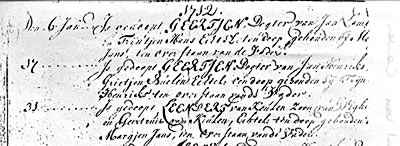 1712.
Den 6 Janu. Is gedoopt GEERTJEN Dogter van Jan
en Trintjen Mons Echtel. ten doop gehouden bij
ten over staan van de Vader.
17 Is gedoopt GEERTJEN Dogter van Jan Henricks,
Geertjen Roelen Echtel. ten doop gehouden bij Trijn
Henricks ten over staan vande Vader.
31 Is gedoopt LEENDERT van Keulen Zoon van
en Geertruit van Keulen, Echtel. ten doop gehouden
Margjen Jans, ten over staan vande Vader.